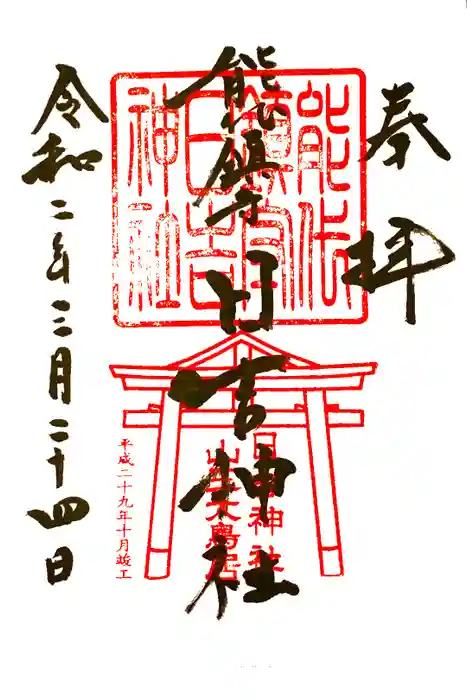 奉拝
能代鎮守日吉神社
令和二年三月二十四日
能代
鎮守
日吉
神社
日吉神社
山王大鳥居
平成二十九年十月竣工